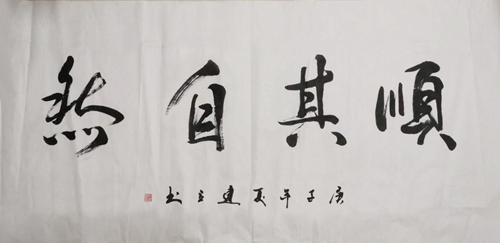 順其自然
庚子年夏建立书